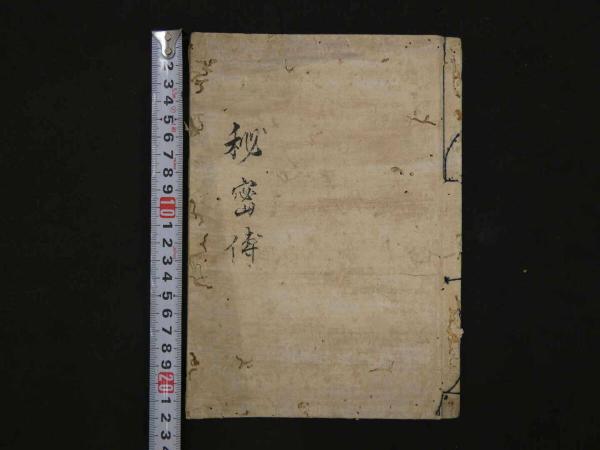 秘密傳
2
3
4
5
6
7
8
9
10
1
2
3
4
5
6
7
8
9
20
1
2
3